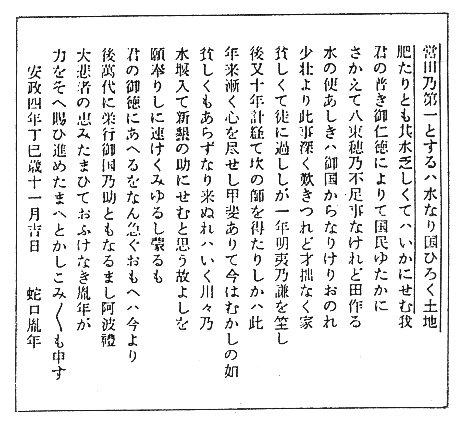 営田乃第一とするハ水なり国ひろく土地
肥たりとも其水乏しくてハいかにせむ我
君の普き御仁徳によりて国民ゆたかに
さかえて八束穂乃不足事なけれど田作る
水の便あしきハ御国からなりけりおのれ
少壮より此事深く歎きつれど才拙なく家
貧しくて徒に過ししが一年明夷乃謙を筮し
後又十年計経て坎の師を得たりしかハ此
年来漸く心を尽せし甲斐ありて今はむかしの如
貧しくもあらずなり来ぬれハいく川々乃
水堰入て新懇の助にせむと思う故よしを
願奉りしに速けくみゆるし蒙るも
君の御徳にあへるをなん急ぐおもへハ今より
後萬代に栄行御国乃助ともなるまし阿波禮
大悲者の恵みたまひておふけなき胤年が
力をそへ賜ひ進めたまへとかしこみ〱も申す
安政四年丁巳歳十一月吉日　蛇口胤年